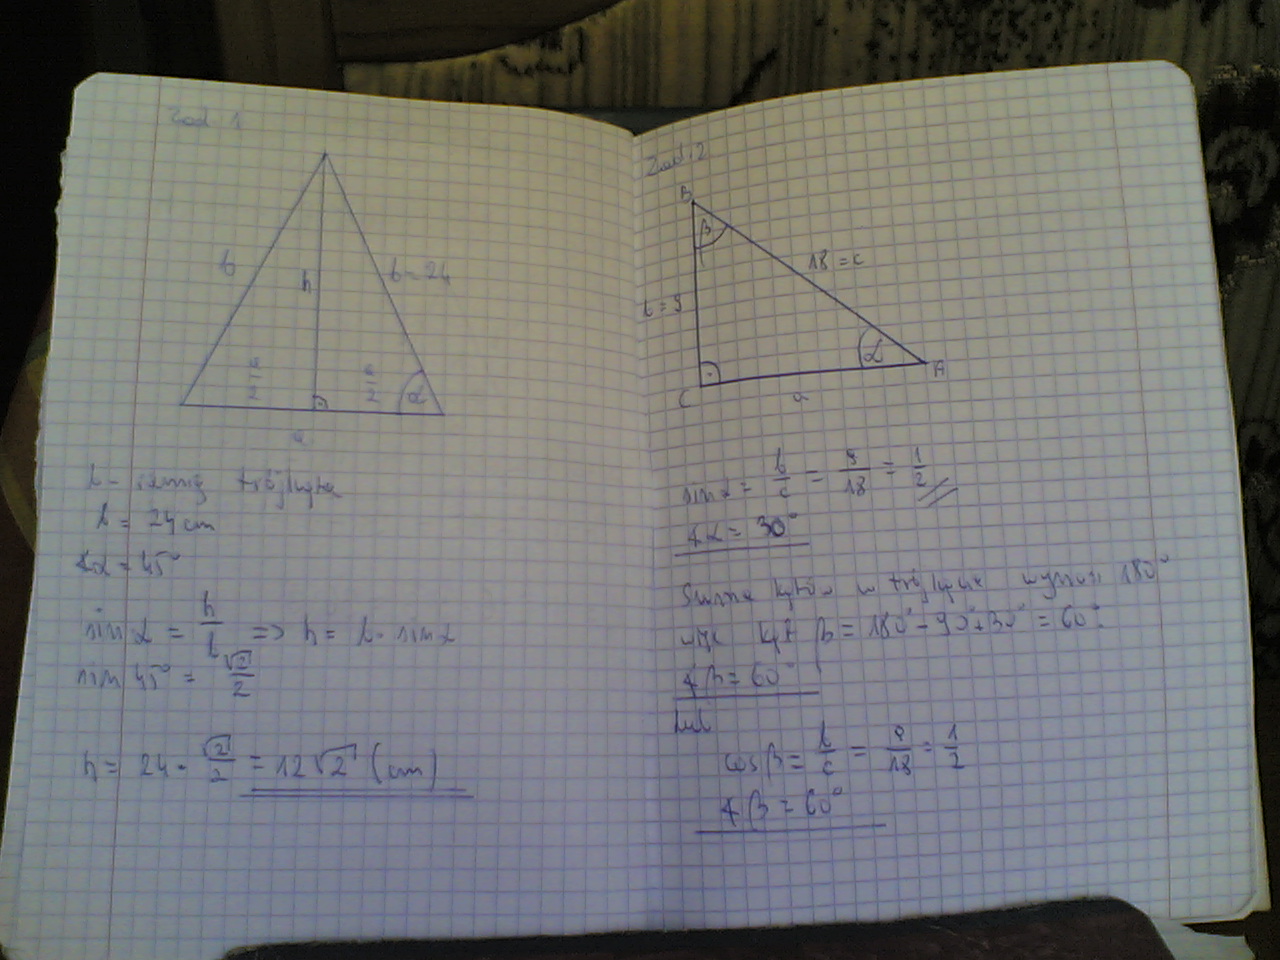 Zad. 1
b
h
b = 24
a/2
a/2
α
a
b - ramię trójkąta
b = 24 cm
∢α = 45°
sin α = h/b => h = b · sin α
sin 45° = √2/2
h = 24 · √2/2 = 12√2 (cm)
Zad. 2
B
β
18 = c
b = 9
α
A
C
a
sin α = b/c = 9/18 = 1/2
∢α = 30°
Suma kątów w trójkącie wynosi 180°
więc kąt β = 180° - 90° + 30° = 60°
∢β = 60°
lub
cos β = b/c = 9/18 = 1/2
∢β = 60°